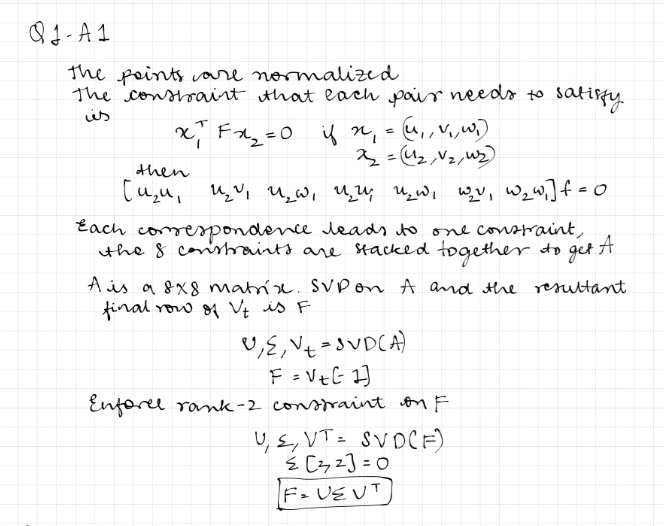 Q1-A1
The points are normalized
The constraint that each pair needs to satisfy
is
x₁ᵀ F x₂ = 0 if x₁ = (u₁, v₁, w₁)
x₂ = (u₂, v₂, w₂)
then
[u₂u₁ u₂v₁ u₂w₁ u₂u₁ u₂w₁ w₂v₁ w₂w₁] f = 0
Each correspondence leads to one constraint,
the 8 constraints are stacked together to get A
A is a 8x8 matrix. SVD on A and the resultant
final row of Vt is F
U, Σ, Vt = SVD(A)
F = Vt[-1]
Enforce rank-2 constraint on F
U, Σ, VT = SVD(F)
Σ[2,2] = 0
F = UΣVᵀ